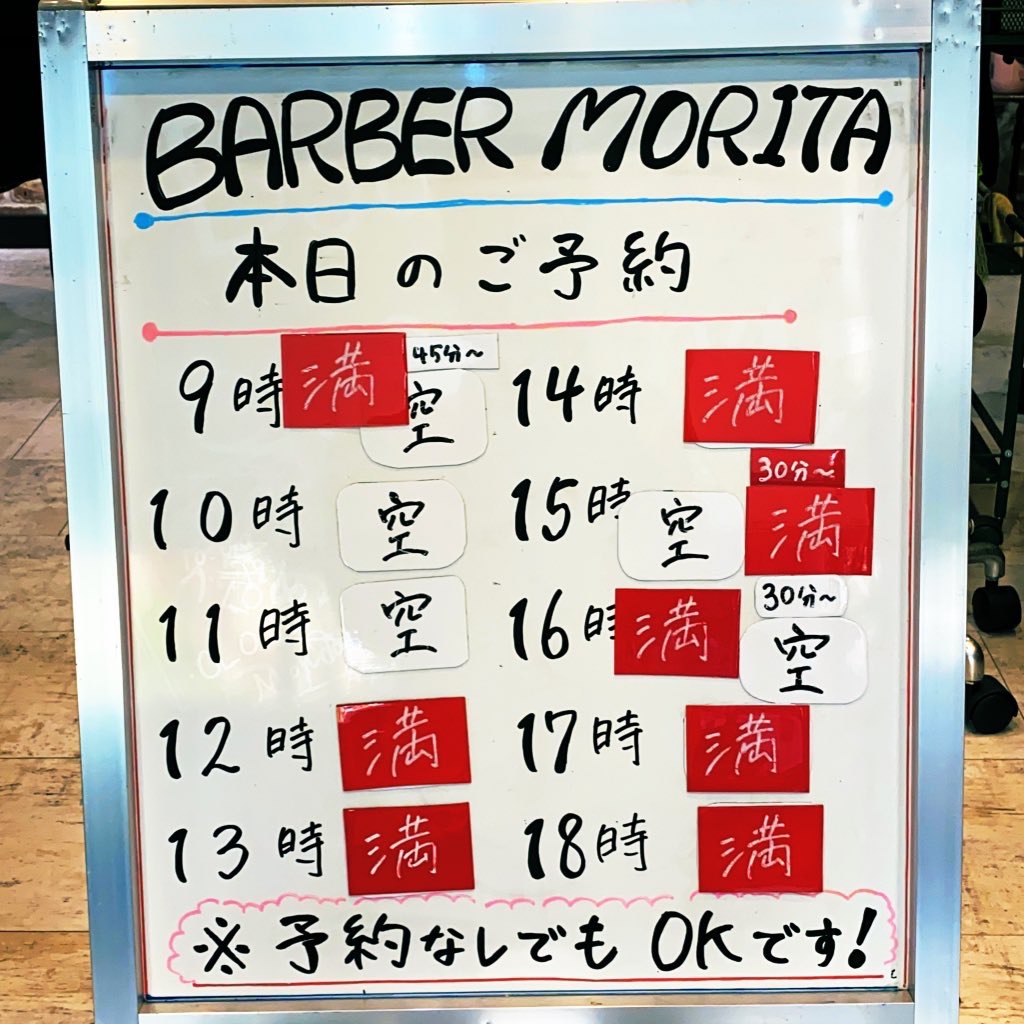 BARBER MORITA
本日のご予約
9時 満 45分〜 空
10時 空
11時 空
12時 満
13時 満
14時 満
15時 空 30分〜 満
16時 満 30分〜 空
17時 満
18時 満
※予約なしでもOKです!